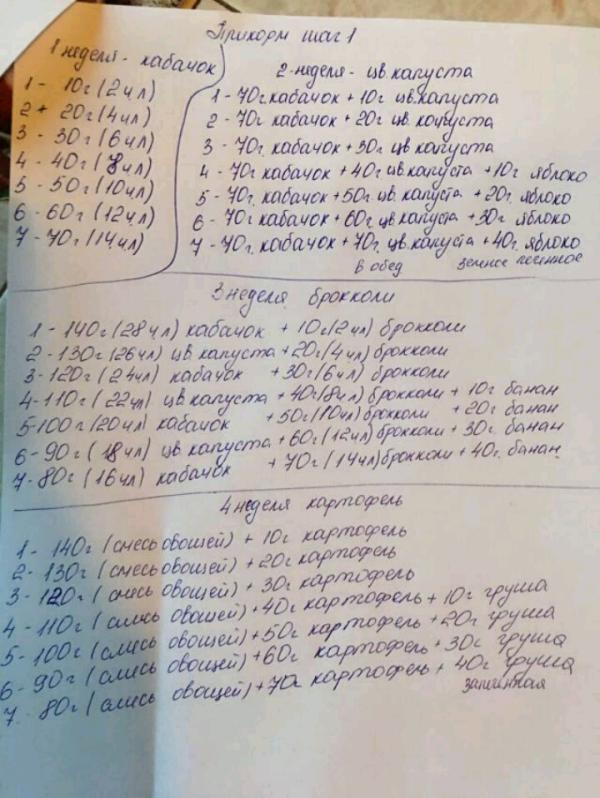 Прикорм шаг 1
1 неделя - кабачок
1 - 10г (2 ч л)
2 + 20г (4 ч л)
3 - 30г (6 ч л)
4 - 40г (8 ч л)
5 - 50г (10 ч л)
6 - 60г (12 ч л)
7 - 70г (14 ч л)
2 неделя - цв. капуста
1 - 70г кабачок + 10г цв. капуста
2 - 70г кабачок + 20г цв капуста
3 - 70г. кабачок + 30г цв. капуста
4 - 70г кабачок + 40г цв. капуста + 10г яблоко
5 - 70г. кабачок + 50г. цв. капуста + 20г. яблоко
6 - 70г. кабачок + 60г. цв капуста + 30г яблоко
7 - 70г. кабачок + 70г. цв. капуста + 40г. яблоко
в обед
3 неделя брокколи
1 - 140г (28 ч л) кабачок + 10г (2 ч л) брокколи
2 - 130г (26 ч л) цв. капуста + 20г (4 ч л) брокколи
3 - 120г (24 ч л) кабачок + 30г (6 ч л) брокколи
4 - 110г (22 ч л) цв капуста + 40г (8 ч л) брокколи + 10г банан
5 - 100г (20 ч л) кабачок + 50г (10 ч л) брокколи + 20г банан
6 - 90г (18 ч л) цв. капуста + 60г (12 ч л) брокколи + 30г. банан
7 - 80г (16 ч л) кабачок + 70г (14 ч л) брокколи + 40г. банан
4 неделя картофель
1 - 140г (смесь овощей) + 10г картофель
2 - 130г (смесь овощей) + 20г картофель
3 - 120г (смесь овощей) + 30г картофель
4 - 110г (смесь овощей) + 40г картофель + 10г груша
5 - 100г (смесь овощей) + 50г картофель + 20г груша
6 - 90г (смесь овощей) + 60г картофель + 30г груша
7 - 80г (смесь овощей) + 70г картофель + 40г груша